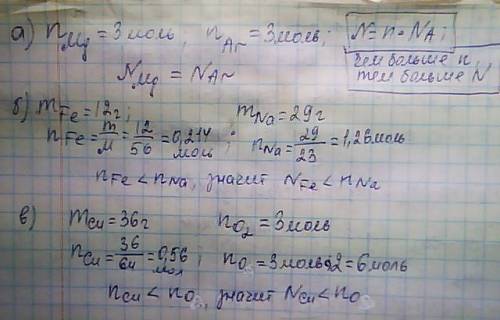 а) nMg = 3 моль; nAr = 3 моль; N = n · NA;
чем больше n,
тем больше N
NMg = NAr
б) mFe = 12г; mNa = 29г
nFe = m/M = 12/56 = 0,214 моль; nNa = 29/23 = 1,26 моль
nFe < nNa, значит NFe < nNa
в) mCu = 36г nO2 = 3 моль
nCu = 36/64 = 0,56 мол; nO = 3 моль · 2 = 6 моль
nCu < nO, значит NCu < nO